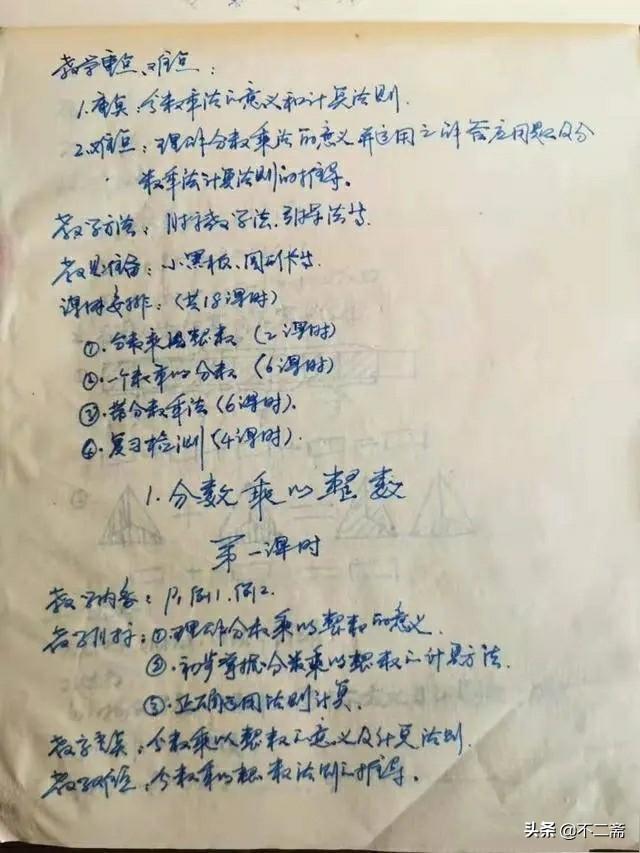 教学重点、难点：
1.重点：分数乘法的意义和计算法则.
2.难点：理解分数乘法的意义并运用它解答应用题及分
数乘法计算法则的推导。
教学方法：教学法、引导法等.
教具准备：小黑板、图形卡等.
课时安排：（共18课时）
①.分数乘以整数（2课时）
②.一个数乘以分数（6课时）
③.带分数乘法（6课时）.
④.复习检测（4课时）.
1.分数乘以整数
第一课时
教学内容：P1例1.例2.
教学目标：①.理解分数乘以整数的意义.
②.初步掌握分数乘以整数的计算方法.
③.正确运用法则计算.
教学重点：分数乘以整数的意义及计算法则.
教学难点：分数乘以整数法则的推导。
头条 @不二斋